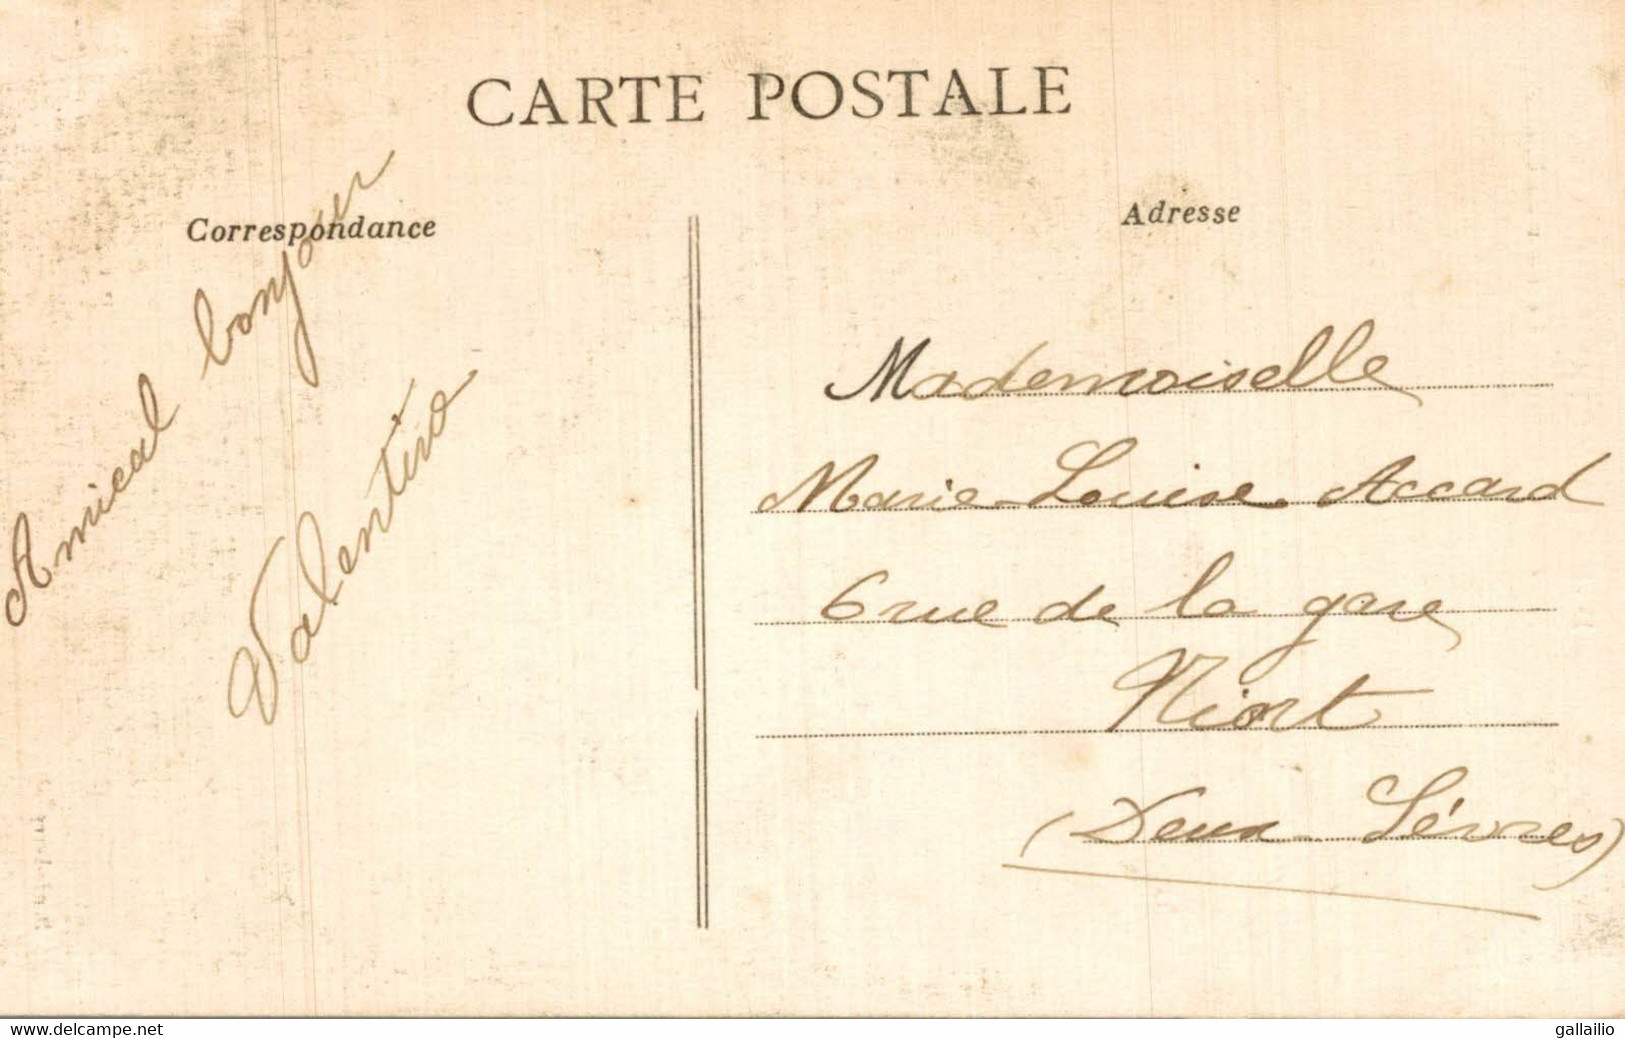 CARTE POSTALE
Correspondance
Adresse
Amical bonjour
Valentina
Mademoiselle
Marie-Louise Accard
6 rue de la gare
Niort
(Deux-Sèvres)
www.delcampe.net
gallailio